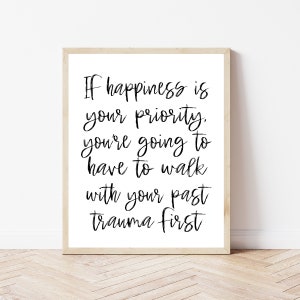 If happiness is
your priority,
you're going to
have to walk
with your past
trauma first